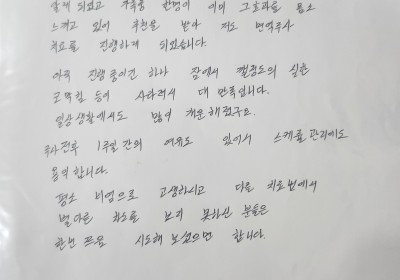 알게 되었고 가족중 한명이 이미 그효과를 톡톡
느끼고 있어 추천을 받아 저도 면역주사
치료를 진행하게 되었습니다.
아직 진행중이긴 하나 잠에서 깰정도의 심한
코막힘 등이 사라져서 대 만족입니다.
일상생활에서도 많이 개운해졌구요.
주사전화 1주일 간의 여유도 있어서 스케줄 관리에도
용이 합니다.
평소 비염으로 고생하시고 다른 치료법에서
별다른 효과를 보지 못하신 분들은
한번 쯤은 시도해 보셨으면 합니다.